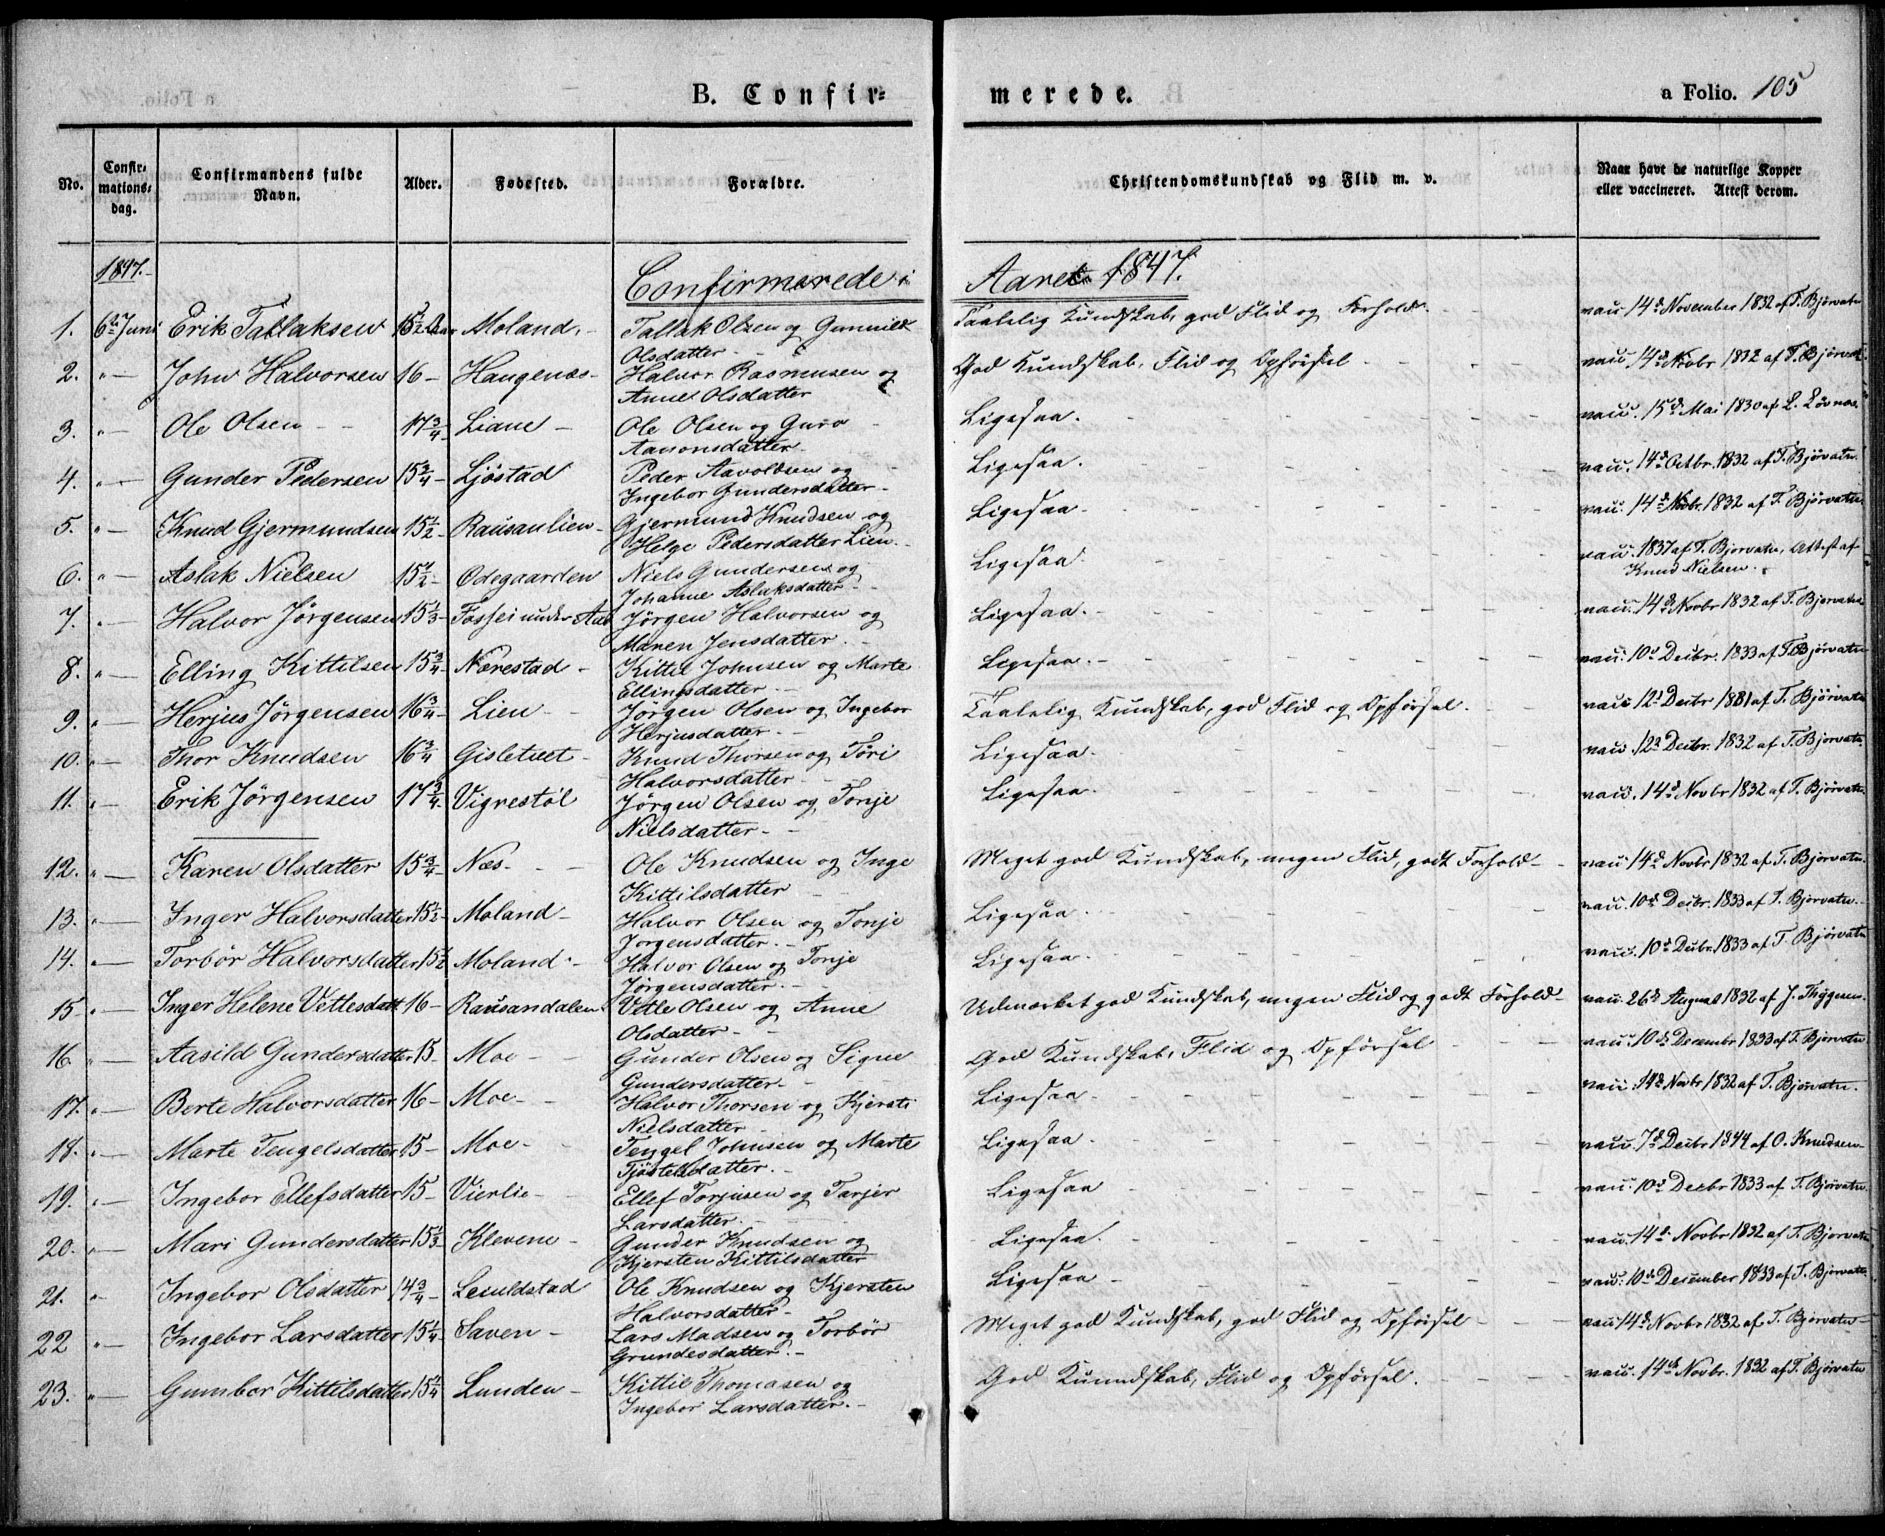 B. Confir=
merede.
a Folio. 105
No.
Confir=
mations=
dag.
Confirmandens fulde
Navn.
Alder.
Fødested.
Forældre.
Christendomskundskab og Flid m. v.
Naar havt de naturlige Kopper
eller vaccineret. Attest derom.
1847.
Confirmerede i
Aaret 1847.
1. 6te Juni Erik Tallaksen 15 1/2 Aar Moland. Tallak Olsen og Gunnild Taalelig Kundskab, god Flid og Forhold. vac. 14d November 1832 af T. Bjørvatn
Olsdatter
2. " John Halvorsen 16 Haugenæs Halvor Rasmusen og God Kundskab, Flid og Opførsel vac. 14d Novbr 1832 af T. Bjørvatn
Anne Olsdatter
3. " Ole Olsen 17 3/4 Liane Ole Olsen og Guro Ligesaa. vac. 15d Mai 1830 af L. Løvnæs
Aanonsdatter
4. " Gunder Pedersen 15 3/4 Ljøstad Peder Aavoldsen og Ligesaa. vac. 14d Octbr. 1832 af T. Bjørvatn
Ingebor Gundersdatter
5. " Knud Gjermundsen 15 1/2 Rausanlien Gjermund Knudsen og Ligesaa. vac. 14d Novbr. 1832 af T. Bjørvatn
Helge Pedersdatter Lien.
6. " Aslak Nielsen 15 1/2 Ødegaarden Niels Gundersen og Ligesaa. vac. 1837 af T. Bjorvatn, Attest af
Johanne Aslaksdatter Knud Nielsen.
7. " Halvor Jørgensen 15 1/3 Fossei under Aas Jørgen Halvorsen og Ligesaa. vac. 14d Novbr 1832 af T. Bjorvatn
Maren Jensdatter
8. " Elling Kittilsen 15 3/4 Nærestad Kittil Johnsen og Marte Ligesaa. vac. 10d Decbr. 1833 af T. Bjørvatn
Ellingsdatter
9. " Herjus Jørgensen 16 3/4 Lien Jørgen Olsen og Ingebor Taalelig Kundskab, god Flid og Opførsel. vac. 12d Decbr 1831 af T. Bjørvatn
Herjusdatter
10. " Thor Knudsen 16 3/4 Knud Thorsen og Tøri Ligesaa. vac. 12d Decbr. 1832 af T. Bjorvatn
Halvorsdatter
11. " Erik Jørgensen 17 3/4 Vigrestøl Jörgen Olsen og Tonje Ligesaa. vac. 14d Novbr 1832 af T. Bjørvatn
Nielsdatter
12. " Karen Olsdatter 15 3/4 Næs Ole Knudsen og Inge Meget god Kundskab, megen Flid, godt Forhold vac. 14d Novbr 1832 af T. Bjørvatn
Kittilsdatter
13. " Inger Halvorsdatter 15 1/2 Moland Halvor Olsen og Tonje Ligesaa. vac. 10d Decbr. 1833 af T. Bjørvatn
Jørgensdatter
14. " Torbør Halvorsdatter 15 1/2 Moland Halvor Olsen og Tonje Ligesaa. vac. 10d Decbr. 1833 af T. Bjørvatn
Jørgensdatter
15 " Inger Helene Vettesdatt 16 Rausandalen Vetle Olsen og Anne Udmærket god Kundskab, megen Flid og godt Forhold vac. 26d August 1832 af J. Thygesen
Olsdatter
16 " Aasild Gundersdatter 15 Moe Gunder Olsen og Signe God Kundskab, Flid og Opførsel vac. 10d Decembr 1833 af T. Bjørvatn
Gundersdatter
17. " Berte Halvorsdatter 16 Moe Halvor Thorsen og Kjersti Ligesaa. vac. 14d Novbr 1832 af T. Bjørvatn
Nielsdatter
18. " Marte Tengelsdatter 15 Moe Tengel Johnsen og Marte Ligesaa. vac. 7d Decbr 1844 af O. Knudsen
Tjöstelsdatter.
19. " Ingebor Ellefsdatter 15 Vierlie Ellef Torjusen og Tarjer Ligesaa vac. 10d Decbr 1833 af T. Bjørvatn
Larsdatter.
20. " Mari Gundersdatter 15 1/3 Klevene Gunder Knudsen og Ligesaa. vac. 14d Novbr 1832 af T. Bjørvatn
Kjersten Kittilsdatter
21. " Ingebor Olsdatter 14 3/4 Ole Knudsen og Kjersten Ligesaa vac. 10d December 1833 af T. Bjørvatn
Halvorsdatter
22 " Ingebor Larsdatter 15 1/4 Saven Lars Madsen og Torbør Meget god Kundskab, god Flid og Opførsel vac. 14d Novbr 1832 af T. Bjørvatn
Grundesdatter.
23. " Gumbor Kittelsdatter 15 1/4 Lunden Kittil Thomasen og God Kunndskab, Flid og Opførsel. vac. 14d Novbr. 1832 af T. Bjørvatn
Ingebor Larsdatter.